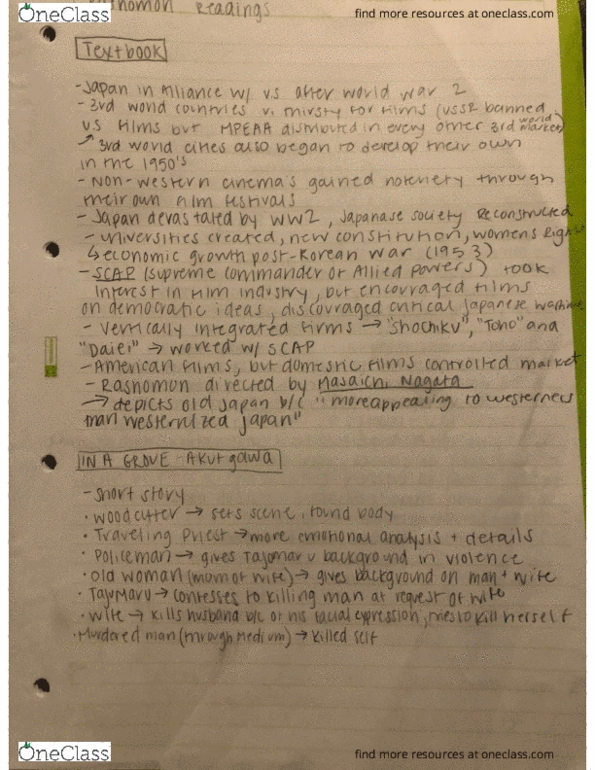 OneClass
find more resources at oneclass.com
Readings
Textbook
-Japan in Alliance w/ US after world war 2
-3rd world countries v. thirsty for films (USSR banned
US films but MPEAA distributed in every other 3rd world market)
→ 3rd world cities also began to develop their own
in the 1950's
- Non-western cinema's gained notoriety through
their own film festivals
- Japan devastated by WW2, Japanase society Reconstructed
- universities created, new constitution, womens Rights
↳ economic growth post-Korean war (1953)
-SCAP (supreme commander of Allied Powers) took
interest in film industry, but encouraged films
on democratic ideas, discouraged critical Japanese
- Vertically integrated firms → "Shochiku", "Toho" and
"Daiei" → worked w/ SCAP
-American films, but domestic films controlled market
- Rashomon directed by Masaichi Nagata
→ depicts old Japan b/c "more appealing to westerners
than westernized Japan"
IN A GROVE - AKUTGAWA
- short story
• woodcutter → sets scene, found body
• Traveling Priest → more emotional analysis + details
• Policeman → gives Tajomaru background in violence
• old woman (mom of wife) → gives background on man + wife
• Tajumaru → confesses to killing man at request of wife
• wife → kills husband b/c of his facial expression, tries to kill herself
• Murdered man (through Medium) → killed self
OneClass
find more resources at oneclass.com